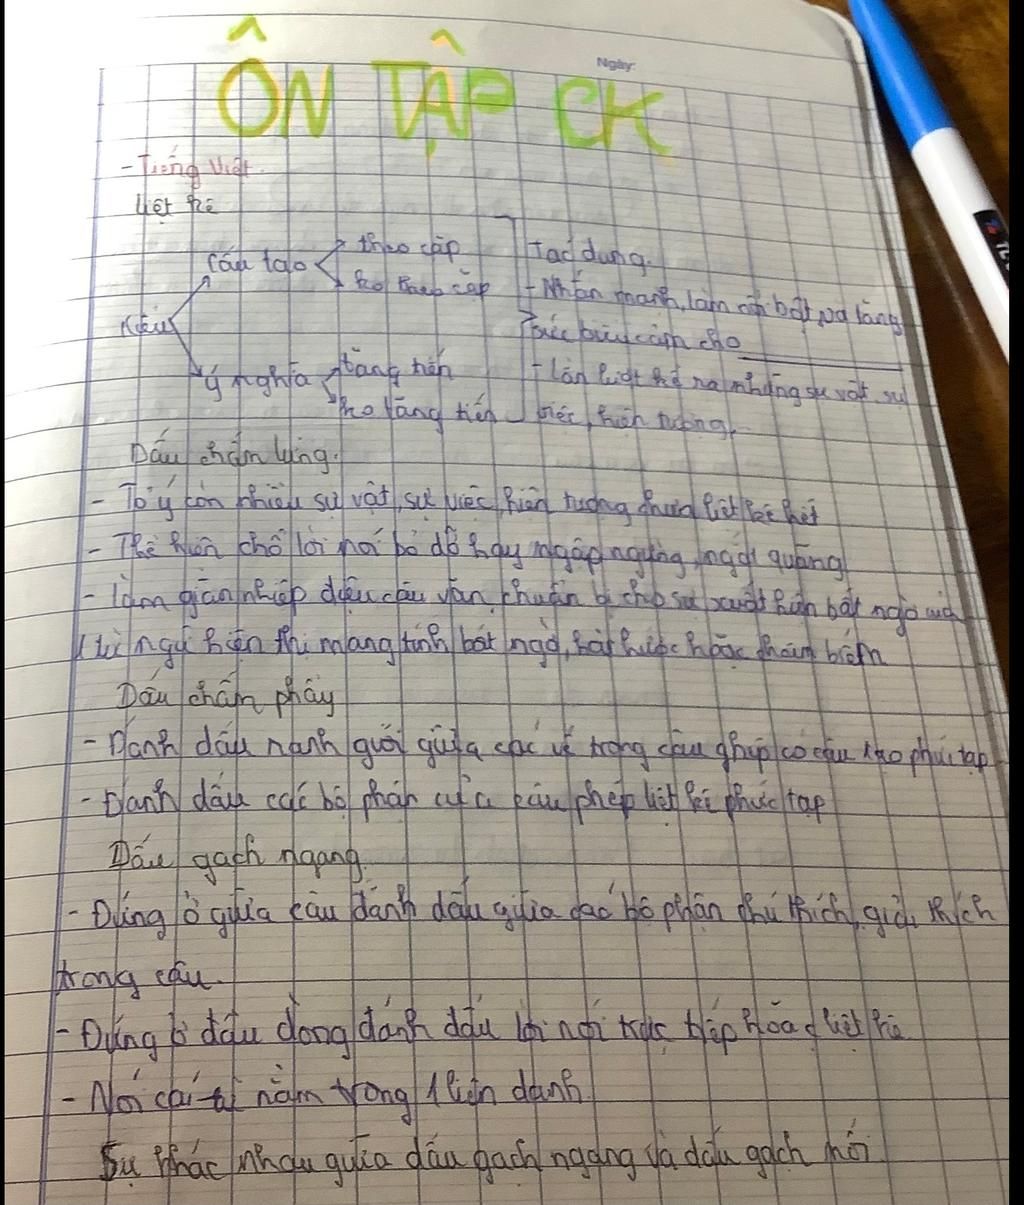 Ngày:
ÔN TẬP CK
- Tiếng Việt.
Liệt kê
Cấu tạo theo cặp
ko theo cặp
Kiểu
Ý nghĩa tăng tiến
ko tăng tiến
Tác dụng.
- Nhấn mạnh, làm nổi bật và tăng
sức biểu cảm cho
- Lần lượt kể ra những sự vật, sự
việc, hiện tượng,
Dấu chấm lửng.
- Tỏ ý còn nhiều sự vật, sự việc, hiện tượng chưa liệt kê hết
- Thể hiện chỗ lời nói bỏ dở hay ngập ngừng, ngắt quãng
- Làm giãn nhịp điệu câu văn, chuẩn bị cho sự xuất hiện bất ngờ của
1 từ ngữ hiện thị mang tính bất ngờ, hài hước hoặc châm biếm
Dấu chấm phẩy
- Đánh dấu ranh giới giữa các vế trong câu ghép có cấu tạo phức tạp
- Đánh dấu các bộ phận của câu phép liệt kê phức tạp
Dấu gạch ngang.
- Đứng ở giữa câu đánh dấu giữa các bộ phận chú thích, giải thích
trong câu.
- Đứng ở đầu dòng đánh dấu lời nói trực tiếp hoặc liệt kê
- Nối các từ nằm trong 1 liên danh
Sự khác nhau giữa dấu gạch ngang và dấu gạch nối